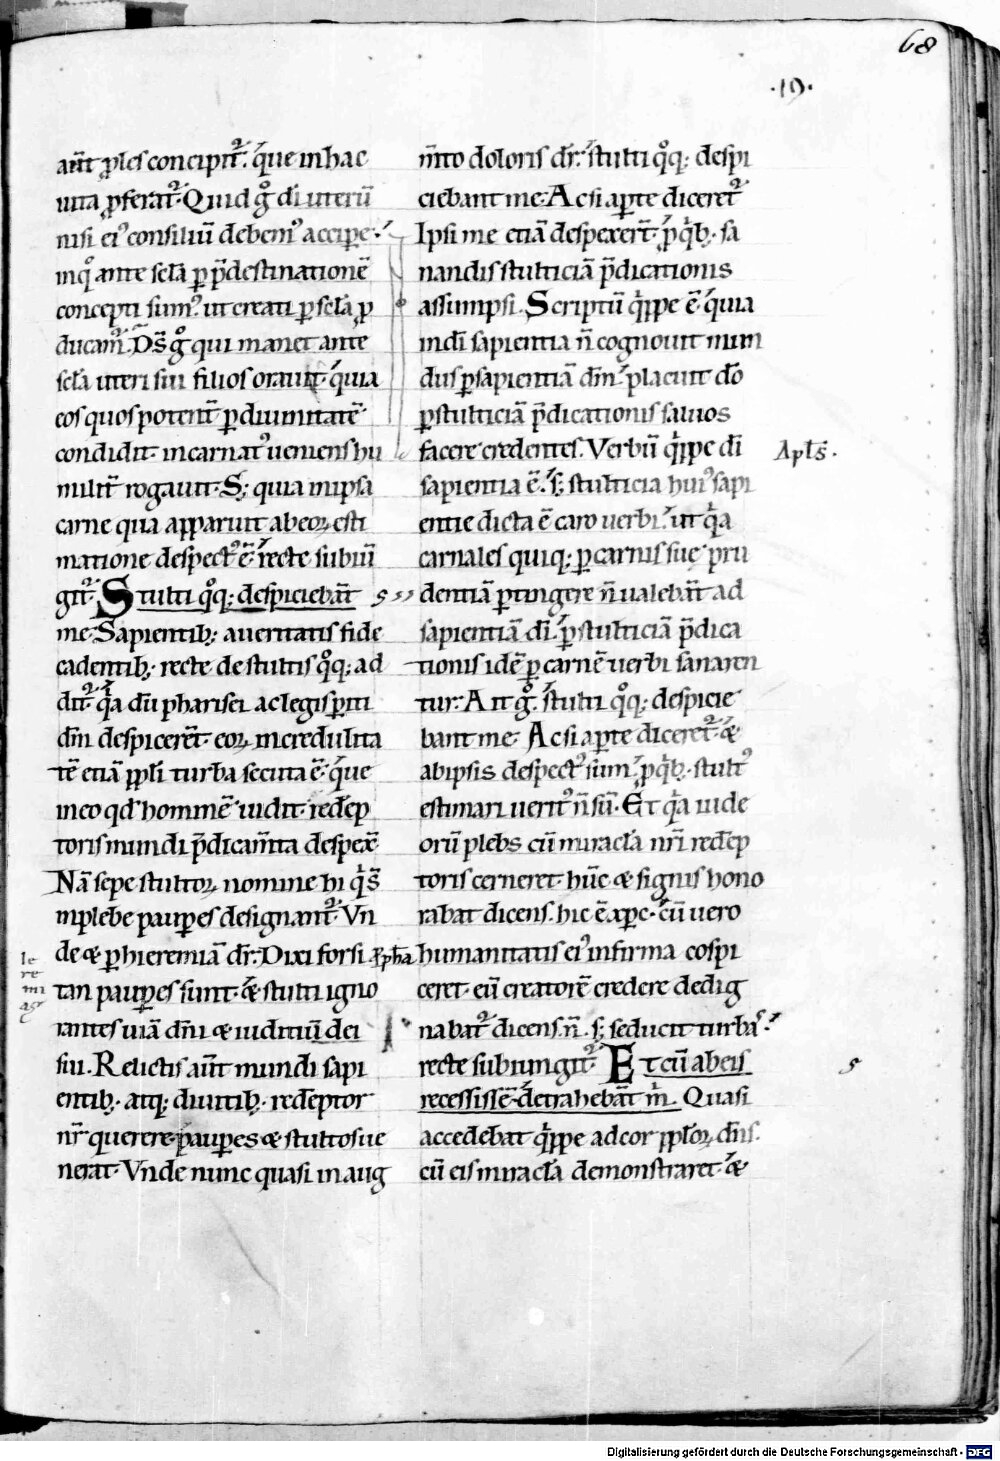 68
.19.
aut̄ ꝓles concipit᷑. q́ue in hac
uita ꝓferat᷑. Quid gͦ di uterū
nisi ei᾽ consiliū debem᾽ accipe.
inqͦ ante scl̄a ꝑ p̄destinationē
concepti sum᾽. ut creati ꝑ scl̄a ꝓ
ducam᷑. Dn̄s gͦ qui manet ante
scl̄a uteri sui filios orauit. q́uia
eos quos potent̄ ꝑ diuinitatē
condidit. incarnat᾽ ueniens hu
milit̄ rogauit. S; quia in ipsa
carne qua apparuit ab eoꝝ esti
matione despect᾽ ē. recte subiū
git᷑. Stulti qͦq; despiciebāt
me. Sapientib; a ueritatis fide
cadentib; recte de stultis qͦq; ad
dit᷑. qͥa dū pharisei ac legis ꝑiti
dn̄m despicerēt. eoꝝ incredulita
tē etiā ppl̄i turba secuta ē. q́ue
in eo qd̄ hominē uidit. redēp
toris mundi p̄dicam̄ta despexᷓ.
Nā sepe stultoꝝ nomine hi qͥ s̄
in plebe pauꝑes designant᷑. Vn
de & ꝑ hieremiā dr̄. Dixi forsi
tan pauꝑes sunt. & stulti igno
rantes uiā dn̄i & iuditiū dei
sui. Relictis aut̄ mundi sapi
entib; atq; diuitib; redēptor
nr̄ querere pauꝑes & stultos ue
nerat. Vnde nunc quasi in aug
Ieremias
m̄to doloris dr̄. stulti qͦq; despi
ciebant me. Ac si aꝑte diceret᷑.
Ipsi me etiā despexert̄. ꝓ qͥb; sa
nandis stulticiā p̄dicationis
assumpsi. Scriptū qͥppe ē. q́uia
in di sapientia n̄ cognouit mun
dus ꝑ sapientiā dm̄. placuit dō
ꝑ stulticiā p̄dicationis saluos
facere credentes. Verbū qͥppe di
sapientia ē. s; stulticia hui᾽ sapi
entie dicta ē caro uerbi. ut qͥa
carnales quiq; ꝑ carnis suę pru
dentiā ꝑtingere n̄ ualebāt ad
sapientiā di. ꝑ stulticiā p̄dica
tionis idē ꝑ carnē uerbi sanaren
tur. Ait gͦ. stulti qͦq; despicie
bant me. Ac si aꝑte diceret᷑. &
ab ipsis despect᾽ sum. ꝓ qͥb; stult᾽
estimari uerit᾽ n̄ sū. Et qͥa iude
orū plebs cū miracl̄a nr̄i redēp
toris cerneret. hūc & signis hono
rabat dicens. hic ē xpc̄. cū uero
humanitatis ei᾽ infirma cōspi
ceret. eū creatorē credere dedig
nabat᷑ dicens. n̄. s; seducit turbas.
recte subiungit᷑. Et cū ab eis
recessissē. detrahebāt mͥ. Quasi
accedebat qͥppe ad cor ppl̄oꝝ dn̄s.
cū eis miracl̄a demonstraret. &
Apl̄s.
Digitalisierung gefördert durch die Deutsche Forschungsgemeinschaft - DFG